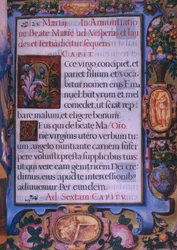 25 Martij. In Annuntiatio
ne Beatæ Mariæ ad Vesperas et Lau
des et Tertia dicitur sequens
CAPIT.
Ecce virgo concipiet, et
pariet filium et voca
bitur nomen eius Em
nuel: butyrum et mel
comedet, ut sciat repro
bare malum, et eligere bonum.
Deus qui de beatæ Ma Oro.
riæ virginis utero verbum tu
um angelo nuntiante carnem susci
pere voluisti præsta supplicibus tuis:
ut qui vere eam genitricem Dei cre
dimus, eius apud te intercessionibus
adiuvemur. Per eundem.
Ad Sextam CAPITV.